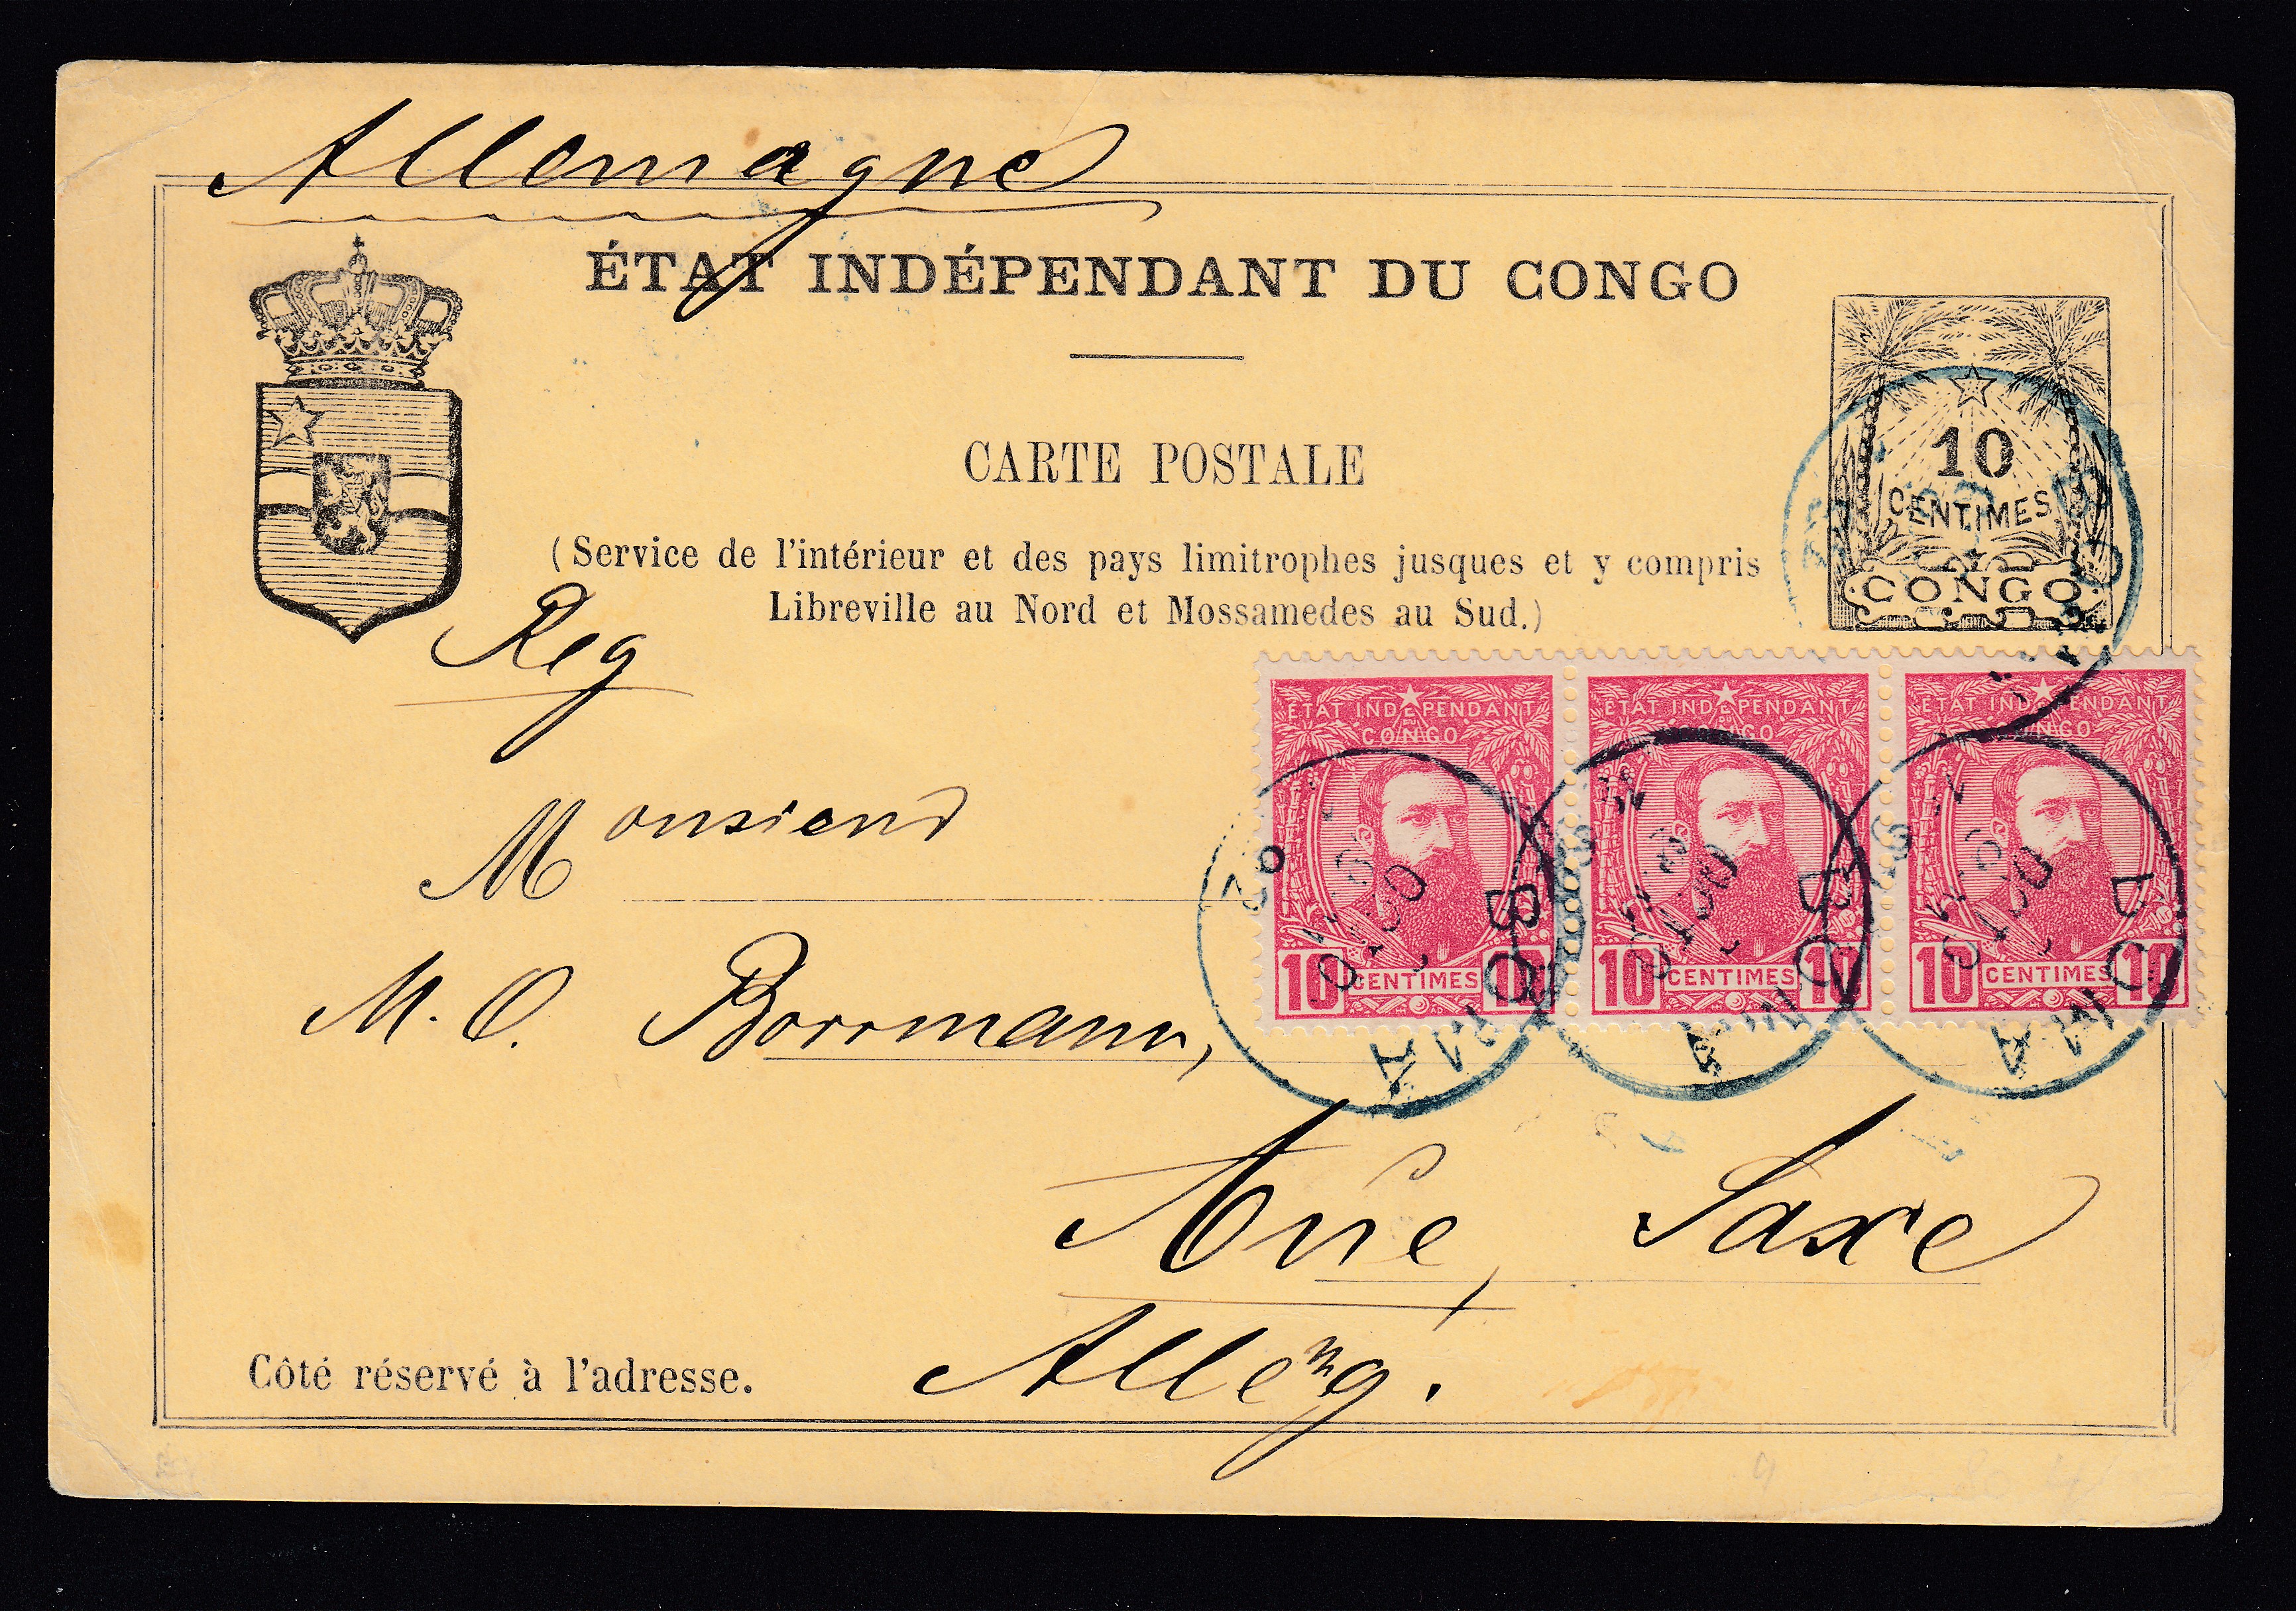 Allemagne
ÉTAT INDÉPENDANT DU CONGO
CARTE POSTALE
10
CENTIMES
CONGO
(Service de l'intérieur et des pays limitrophes jusques et y compris
Libreville au Nord et Mossamedes au Sud.)
Reg
ETAT INDEPENDANT
DU
CONGO
10 CENTIMES 10
ETAT INDEPENDANT
DU
CONGO
10 CENTIMES 10
ETAT INDEPENDANT
CONGO
10 CENTIMES 10
BOMA
BOMA
BOMA
Monsieur
M. O. Borrmann,
Aue, Saxe
Allemg.
Côté réservé à l'adresse.